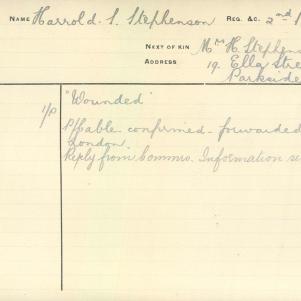 NAME Harrold. S. Stephenson REG. &C. 2nd
NEXT OF KIN Mrs H. Stephen
ADDRESS 19. Ella Stre
Parkside
1/P "Wounded"
P/Cable confirmed - forwarded
London.
Reply from Commrs. Information se